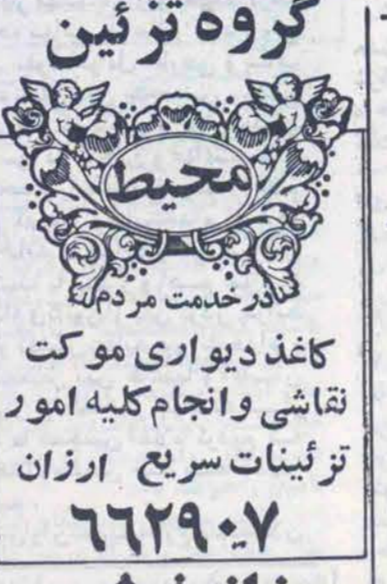 گروه تزئین
محیط
در خدمت مردم
کاغذ دیواری موکت
نقاشی و انجام کلیه امور
تزئینات سریع ارزان
٦٦٢٩٠٧